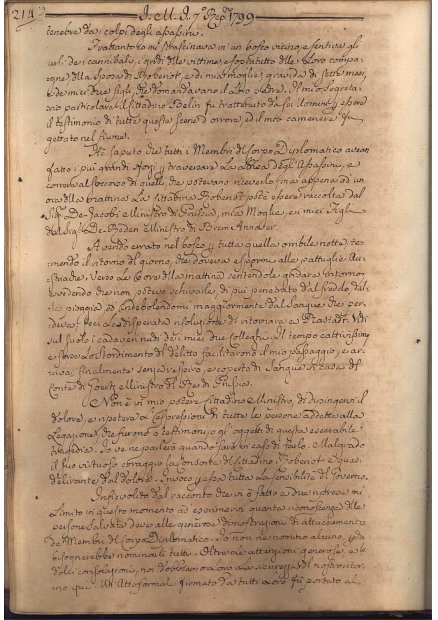 214
I. M. I. 7.º 1799
tenebra da' colpi degli assassini.
Frattanto mi strascinavo in un bosco vicino, e sentivo gli
urli de' cannibali, i gridi delle vittime, e sopratutto delle loro compa-
gne, della sposa di Roberiot, e di mia moglie, gravida di sette mesi,
e de' miei due figli, che domandavano il loro padre. Il mio segreta-
rio particolare, il Cittadino Belin fu trattenuto da sei uomini p essere
il testimonio di tutte queste scene d'orrore, ed il mio cameriere fu
gettato nel fiume.
Ho saputo che tutti i Membri del Corpo Diplomatico avean
fatto i più grandi sforzi p traversare la degli Assassini, e
correre al soccorso di quelli, che potevano riceverlo; ma appena ad un
ora della mattina la Cittadina Roberiot potè essere raccolta dal
Sig.r De-Jacobi Ministro di Prussia, mia Moglie, e i miei figli
dal Sig.r De-Reden Ministro di Brem Annover.
Avendo errato nel bosco p tutta quella orribile notte, te-
mendo il ritorno di giorno, che doveva espormi alle pattuglie Au-
striache. Verso le 6 ore della mattina sentendole girare d'intorno,
e vedendo che non potevo schivarle, di più penetrato dal freddo, dal-
la pioggia, ed indebolendomi maggiormente dal sangue che per-
devo, presi la disperata risoluzione di ritornare a Rastadt. Vidi
sul suolo i cadaveri nudi dei miei due colleghi. Il tempo cattivissimo,
e forse lo stordimento di delitto facilitarono il mio passaggio, e ar-
rivai finalmente senza respiro, e coperto di sangue in casa del
Conte di Goertz Ministro del Re di Prussia.
Non è in mio potere Cittadino Ministro, di dipingervi il
dolore, e ripetervi l'espressioni di tutte le persone addette alla
Legazione, che furono o testimonj, o gli oggetti di questa esecrabile
tragedia. Io ve ne parlerò quando sarò in caso di farlo. Malgrado
il suo virtuoso coraggio la Consorte del Cittadino Roberiot è quasi
delirante dal dolore. Invoco p essa tutta la sensibilità del Governo.
Infievolito dal racconto che vi ò fatto, e due ore prese mi
limito in questo momento ad esprimervi quanta riconoscenza, le
persone salvate deve alle generose dimostrazioni di attaccamento
de' Membri del Corpo Diplomatico. Io non ne nomino alcuno, p che
bisognerebbe nominarli tutti. Oltre le attenzioni generose, e le
dolci consolazioni, noi dobbiamo a loro la sicurezza del nostro ritor-
no quì. Un Atto formale firmato da tutti loro fù portato al